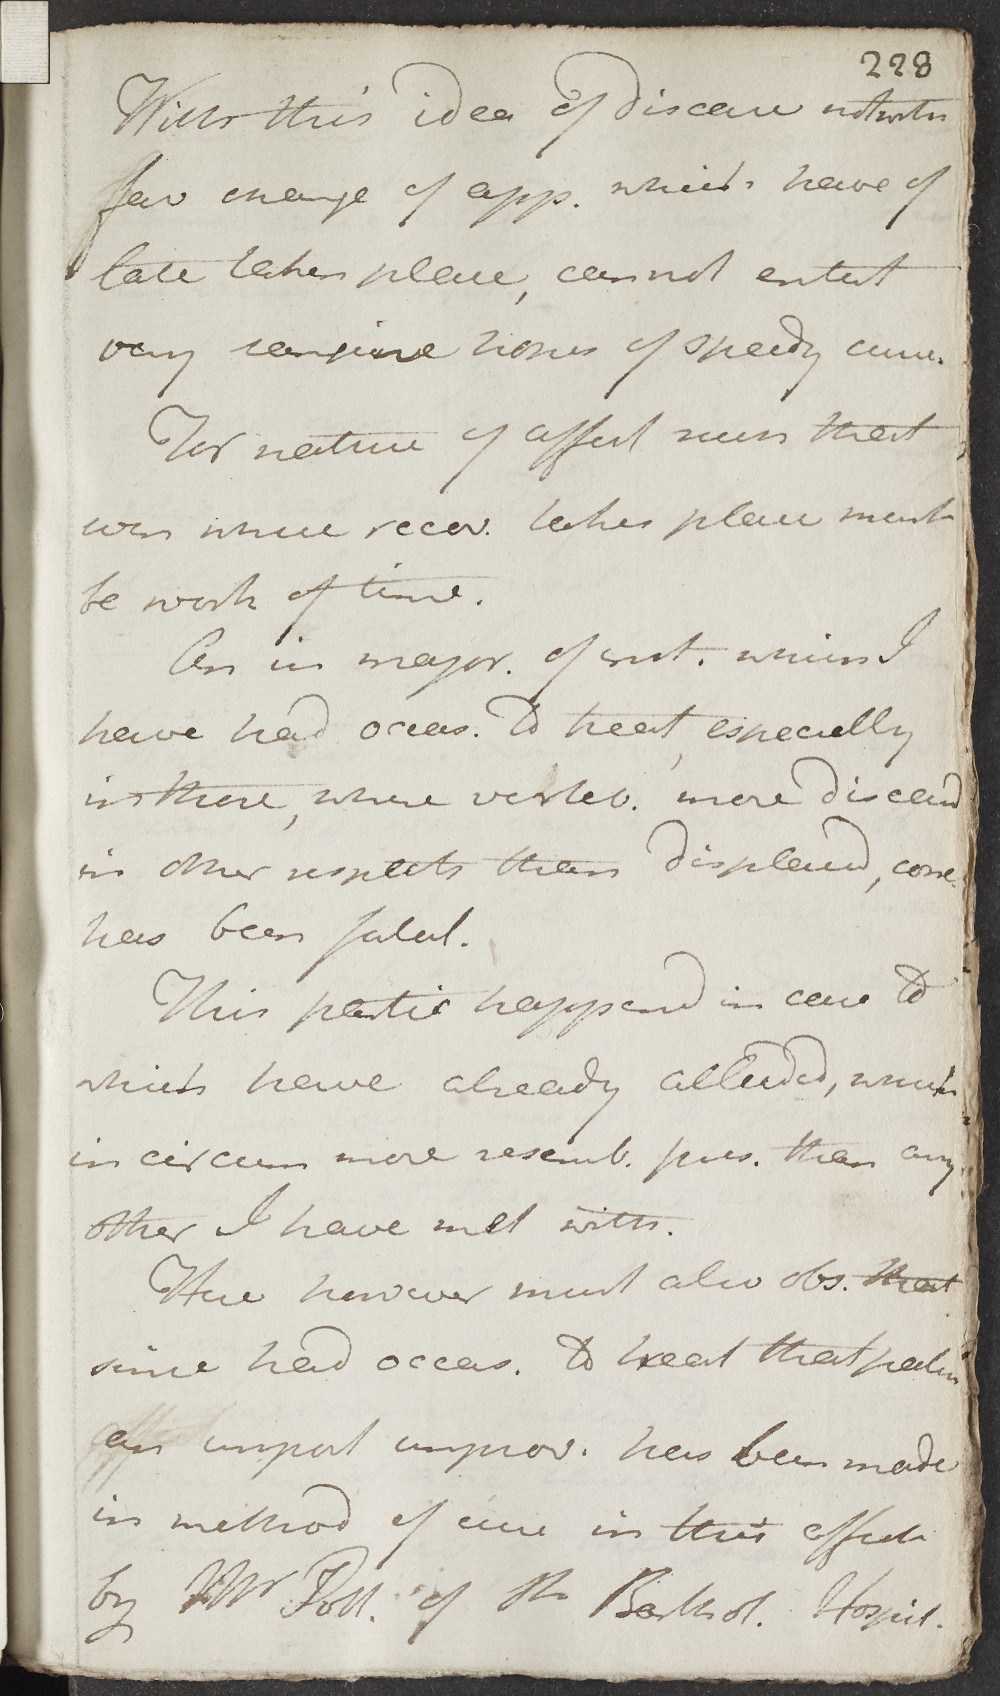 228
With this idea of disease notwith
fav change of app. which have of
late taken place, cannot entert
very sanguine hopes of speedy cure.
For nature of affect such that
even where recov. takes place must
be work of time.
As in major. of inst. which I
have had occas. to treat, especially
in those, where verteb. more diseasd
in other respects than displaced, conseq.
has been fatal.
This partic happend in case to
which have already alluded, which
in circum more resemb. pres. than any
other I have met with.
Here however must also obs. that
since had occas. to treat that patient
an import improv. has been made
in method of cure in this affect
by Mr Pott. of St Barthol. Hospit.